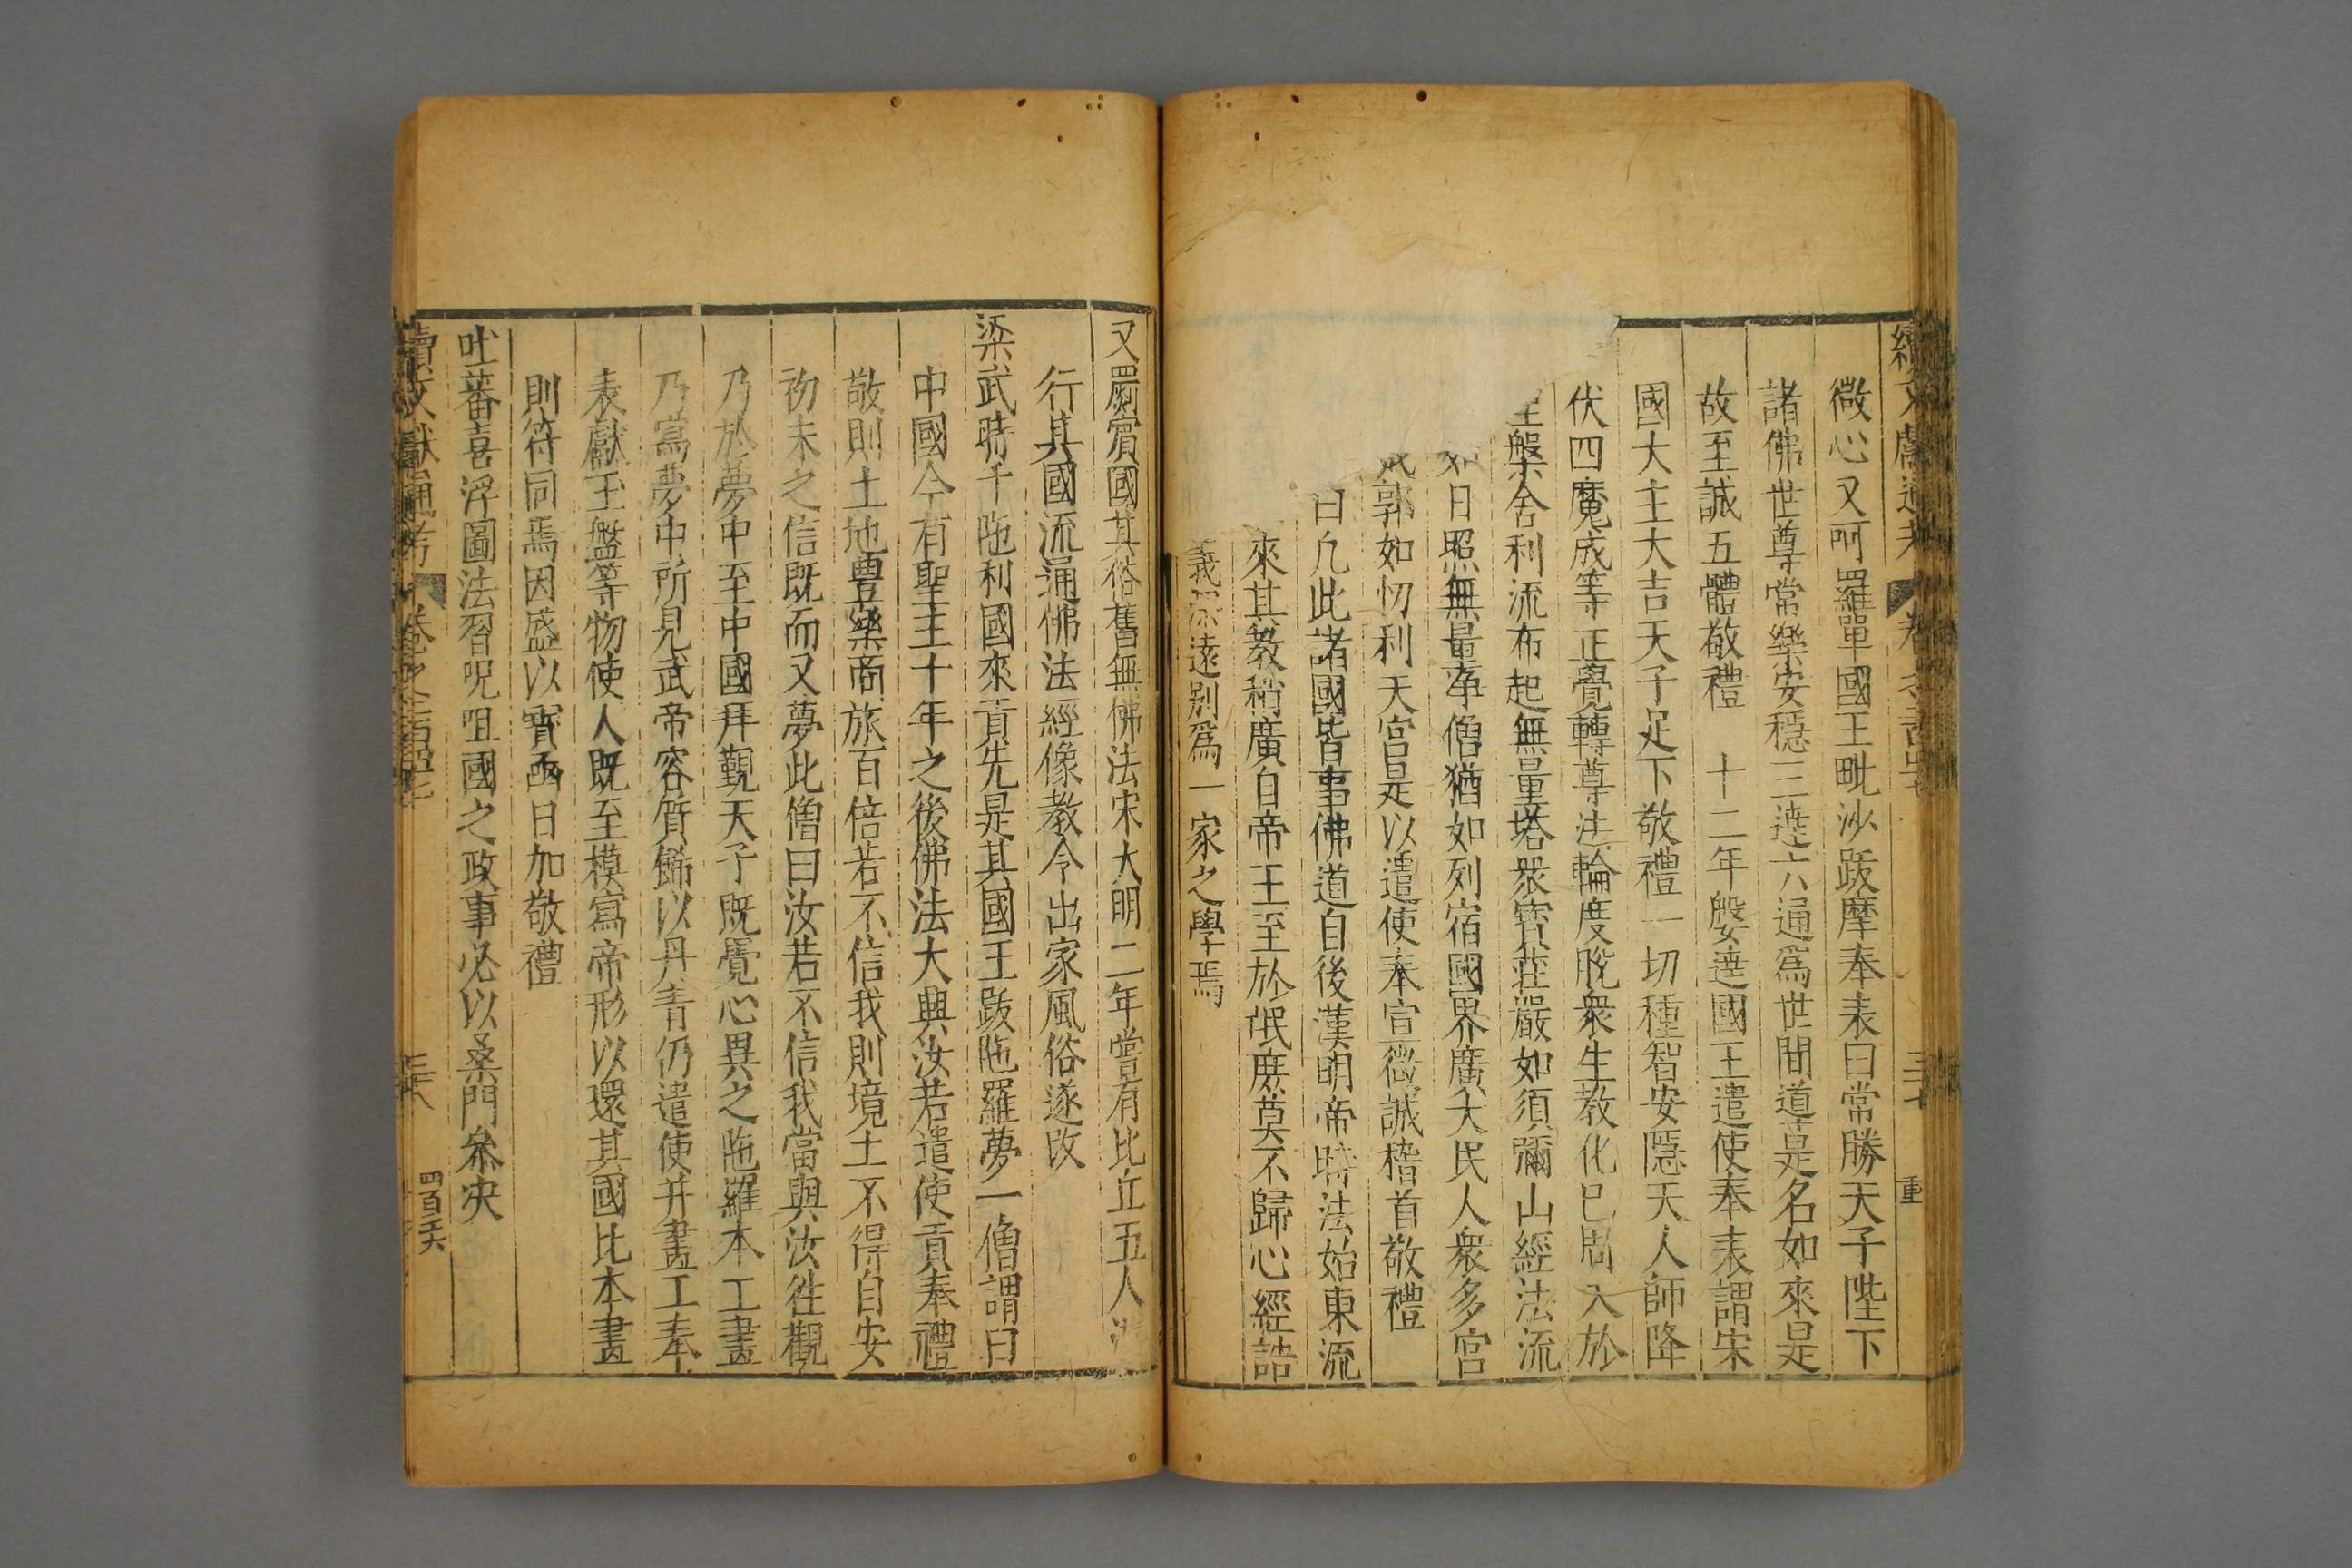 微心又呵羅單國王毗沙跋摩奉表曰常勝天子陛下
諸佛世尊常樂安穩三達六通爲世間道是名如來是
故至誠五體敬禮　十二年槃達國王遣使奉表謂宋
國大主大吉天子足下敬禮一切種智安隱天人師降
伏四魔成等正覺轉尊法輪度脫衆生教化已周入於
槃舍利流布起無量塔衆寶莊嚴如須彌山經法流
日照無量淨僧猶如列宿國界廣大民人衆多宮
郭如忉利天宮是以遣使奉宣微誠稽首敬禮
曰凡此諸國皆事佛道自後漢明帝時法始東流
來其教稍廣自帝王至於氓庶莫不歸心經誥
義深遠別爲一家之學焉
又罽賓國其俗舊無佛法宋大明二年嘗有比丘五人
行其國流通佛法經像教令出家風俗遂改
梁武時干陁利國來貢先是其國王跋陁羅夢一僧謂曰
中國今有聖主十年之後佛法大興汝若遣使貢奉禮
敬則土地豊樂商旅百倍若不信我則境土不得自安
初未之信既而又夢此僧曰汝若不信我當與汝往觀
乃於夢中至中國拜覲天子既覺心異之陁羅本工畫
乃寫夢中所見武帝容質餙以丹青仍遣使并畫工奉
表獻玉盤等物使人既至模寫帝形以還其國比本畫
則符同焉因盛以寶函日加敬禮
吐蕃喜浮圖法習呪咀國之政事必以桑門叅決
續文獻通考　卷之